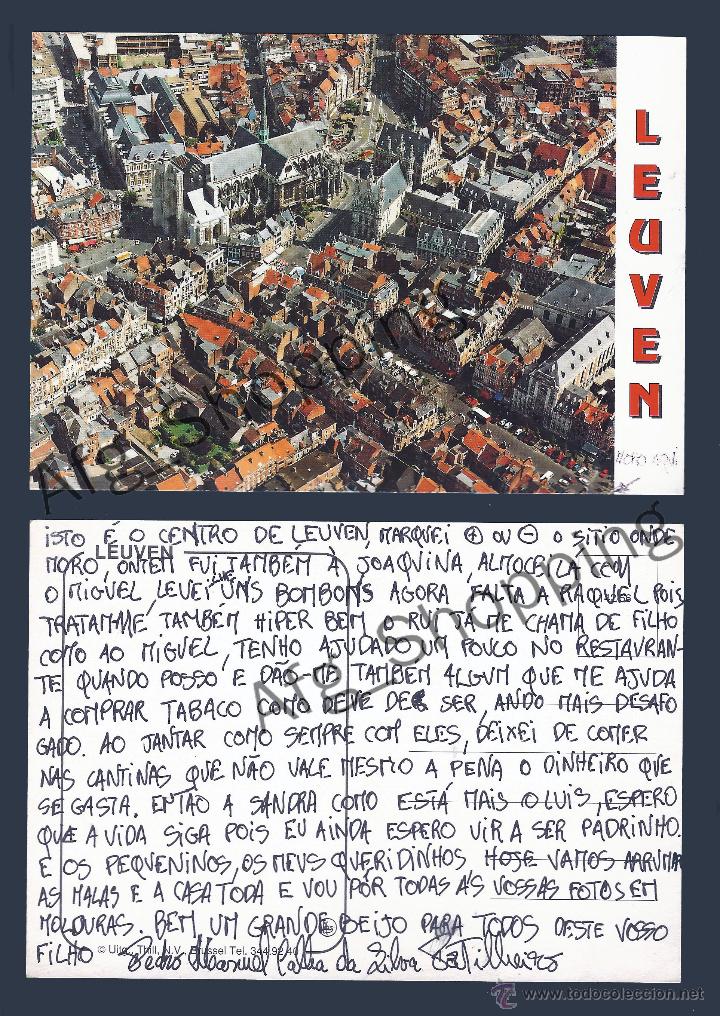 LEUVEN
MORO AQUI
Afg_Shopping
ISTO É O CENTRO DE LEUVEN, MARQUEI + OU - O SITIO ONDE
LEUVEN
MORO, ONTEM FUI TAMBÉM À JOAQUINA, ALMOCEI LÁ COM
O MIGUEL, LEVEI-LHE UNS BOMBONS AGORA FALTA A RAQUEL POIS
TRATAM-ME TAMBÉM HIPER BEM O RUI JÁ ME CHAMA DE FILHO
COMO AO MIGUEL, TENHO AJUDADO UM POUCO NO RESTAURAN-
TE QUANDO POSSO E DÃO-ME TAMBÉM ALGUM QUE ME AJUDA
A COMPRAR TABACO COMO DEVE DE SER, ANDO MAIS DESAFO
GADO. AO JANTAR COMO SEMPRE COM ELES, DEIXEI DE COMER
NAS CANTINAS QUE NÃO VALE MESMO A PENA O DINHEIRO QUE
SE GASTA. ENTÃO A SANDRA COMO ESTÁ MAIS O LUIS, ESPERO
QUE A VIDA SIGA POIS EU AINDA ESPERO VIR A SER PADRINHO.
E OS PEQUENINOS, OS MEUS QUERIDINHOS HOJE VAMOS ARRUMAR
AS MALAS E A CASA TODA E VOU PÔR TODAS AS VOSSAS FOTOS EM
MOLDURAS. BEM, UM GRANDE BEIJO PARA TODOS DESTE VOSSO
FILHO Pedro Manuel da Silva
© Uitg. Thill, N.V. Brussel Tel. 344.92.40
Afg_Shopping
© www.todocoleccion.net